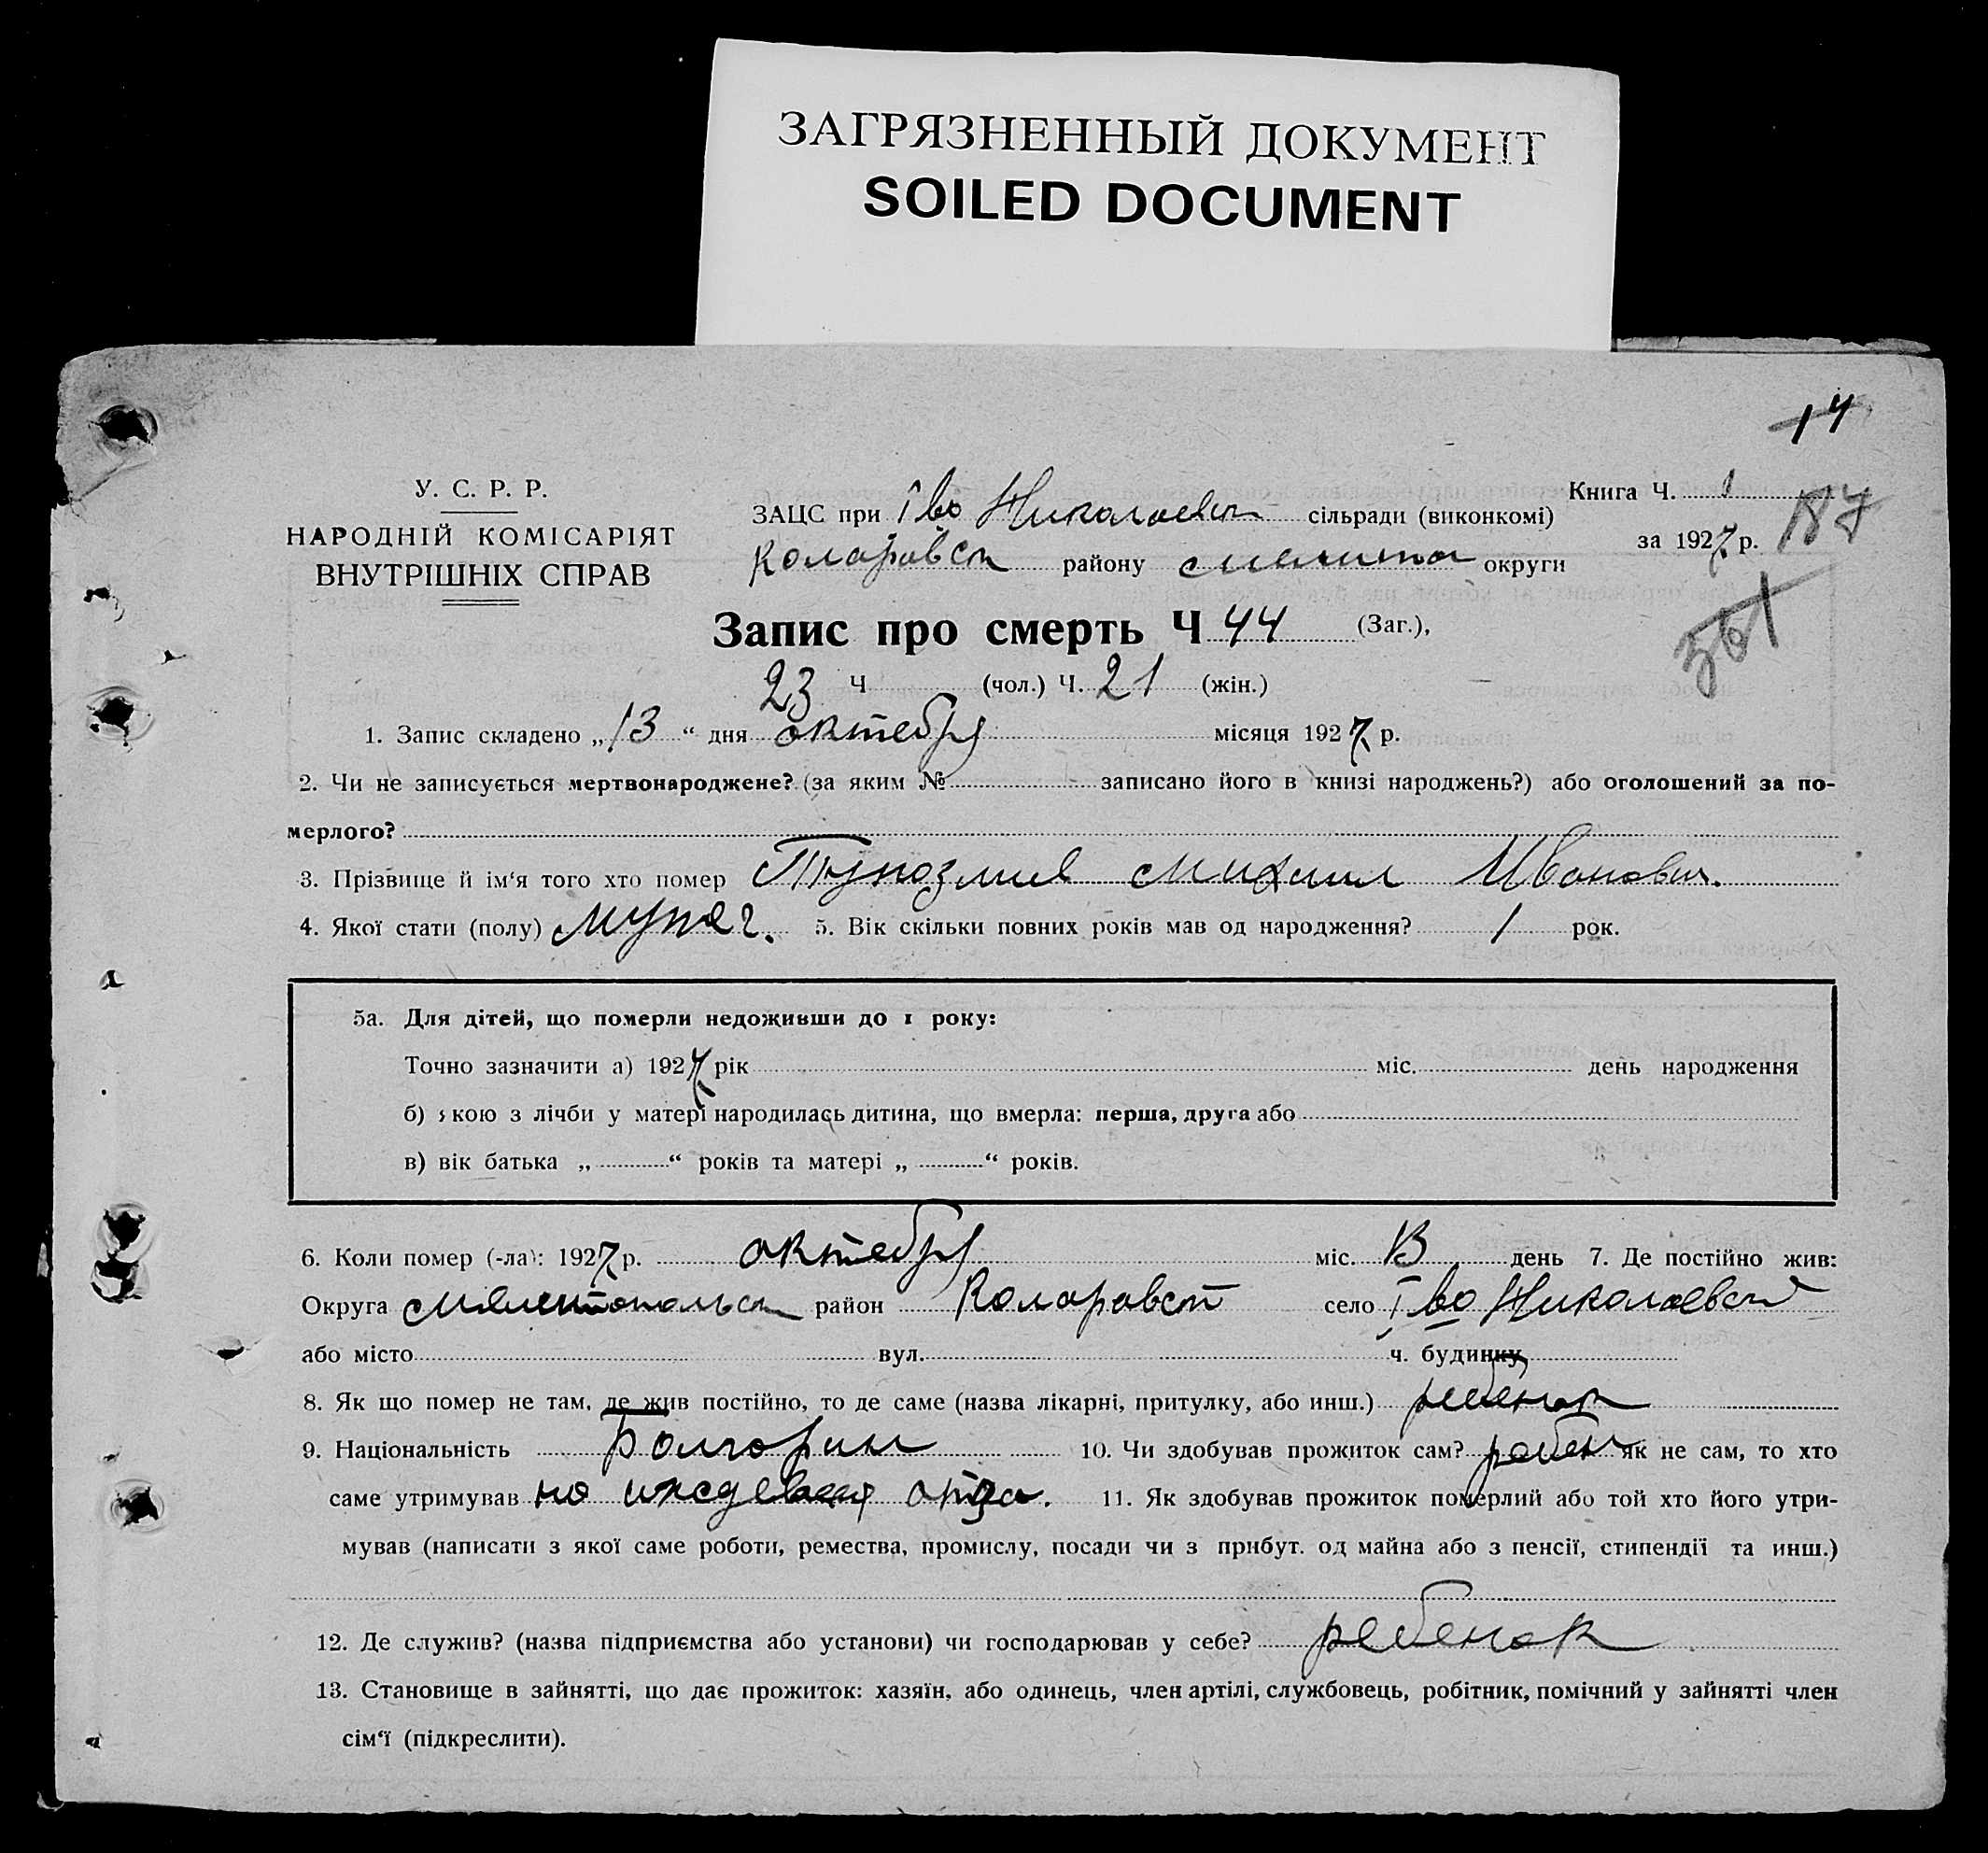 ЗАГРЯЗНЕННЫЙ ДОКУМЕНТ
SOILED DOCUMENT
14
У. С. Р. Р.
НАРОДНІЙ КОМІСАРІЯТ
ВНУТРІШНІХ СПРАВ
ЗАЦС при Iво Николаевск сільради (виконкомі)
Коларовск району мелитоп округи
Книга Ч. 1
за 1927 р.
187
361
Запис про смерть Ч 44 (Заг.),
23 Ч (чол.) Ч. 21 (жін.)
1. Запис складено „ 13 “ дня октебря місяця 1927 р.
2. Чи не записується мертвонароджене? (за яким № записано його в книзі народжень?) або оголошений за по-
мерлого?
3. Прізвище й ім‘я того хто помер Михаил Иванович.
4. Якої стати (полу) 5. Вік скільки повних років мав од народження? 1 рок.
5а. Для дітей, що померли недоживши до 1 року:
Точно зазначити а) 1927 рік міс. день народження
б) якою з лічби у матері народилась дитина, що вмерла: перша, друга або
в) вік батька „ “ років та матері „ “ років.
6. Коли помер (-ла): 1927 р. октебря міс. 13 день 7. Де постійно жив:
Округа мелитопольск район Коларовск село Iво Николаевск
або місто вул. ч. будинку
8. Як що помер не там, де жив постійно, то де саме (назва лікарні, притулку, або инш.) ребенок
9. Національність болгорин 10. Чи здобував прожиток сам? ребен як не сам, то хто
саме утримував на иждевеня отца. 11. Як здобував прожиток померлий або той хто його утри-
мував (написати з якої саме роботи, ремества, промислу, посади чи з прибут. од майна або з пенсії, стипендії та инш.)
12. Де служив? (назва підприємства або установи) чи господарював у себе? ребенок
13. Становище в зайнятті, що дає прожиток: хазяїн, або одинець, член артілі, службовець, робітник, помічний у зайнятті член
сім‘ї (підкреслити).